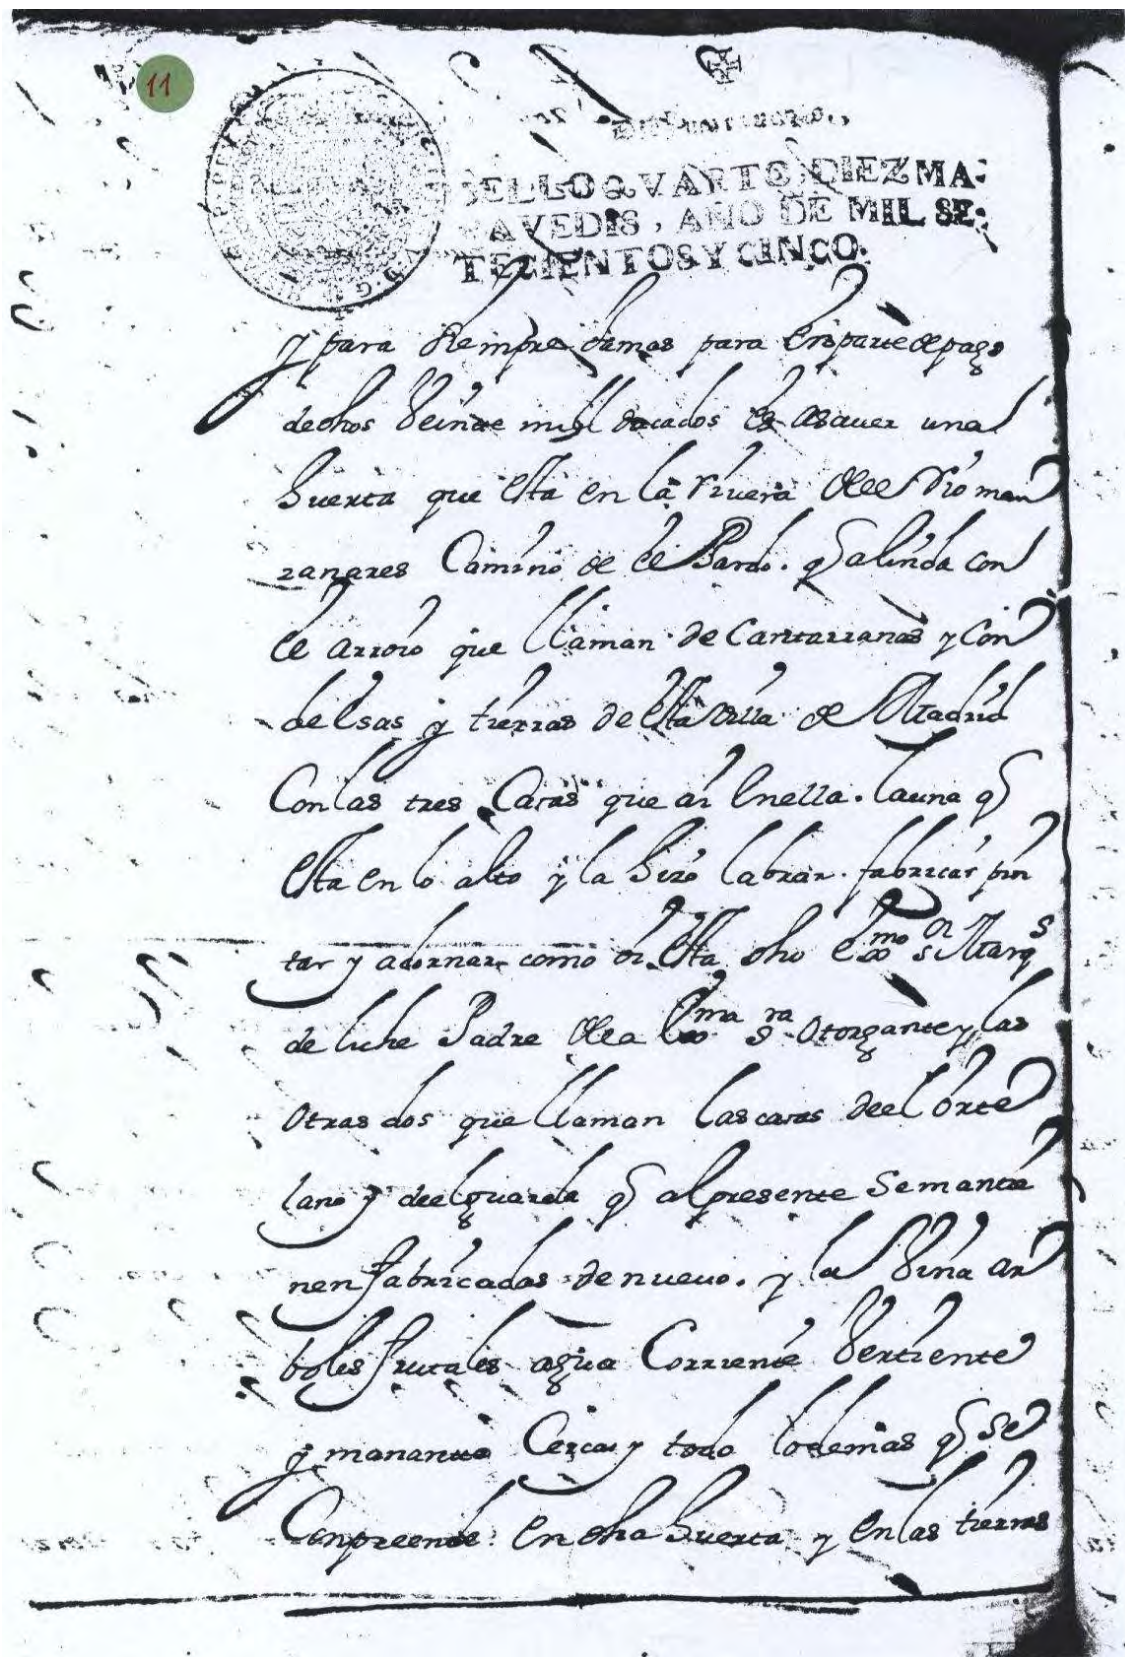 11
SELLO QVARTO, DIEZ MA-
RAVEDIS, AÑO DE MIL SE-
TECIENTOS Y CINCO.
y para siempre Jamas para en parte de pago
dechos Veinte mill ducados es asauer una
huerta que esta en la riuera de el Rio man
zanares Camino de el Pardo. q alinda con
el arroio que llaman de Cantarranas y Con
de esas y tierras de esta Villa de Madrid
Con las tres Casas que ai en ella. la una q
esta en lo alto y la hizo labrar. fabricar pin
tar y adornar como oi esta dho exmo sr Marqs
de liche Padre de la exma sra Otorgante y las
otras dos que llaman las casas de el orte
lano y de el guarda q al presente se mantie
nen fabricadas de nueuo. y la Viña ar
boles frutales agua Corriente Vertiente
y manante Cercas y todo lo demas q se
Conpreende en dha huerta y en las tierras